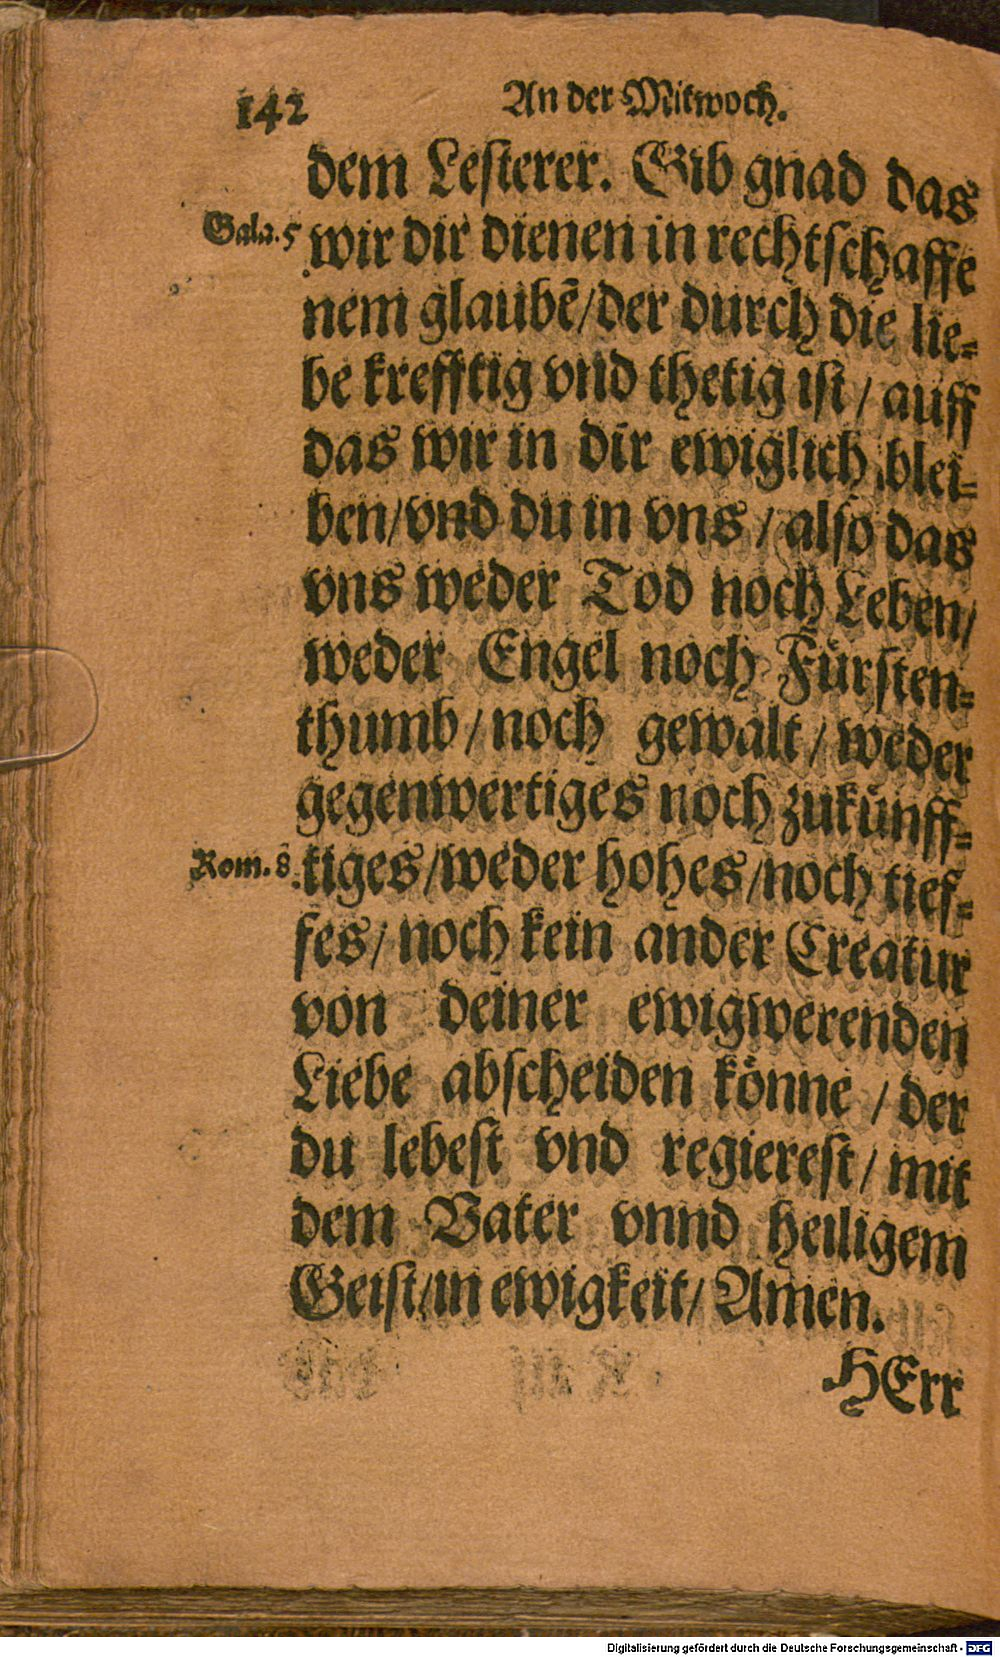 142 An der Mitwoch.
dem Lesterer. Gib gnad das
Gala. 5 wir dir dienen in rechtschaffe
nem glaubẽ/der durch die lie-
be krefftig vnd thetig ist / auff
das wir in dir ewiglich blei-
ben/vnd du in vns / also das
vns weder Tod noch Leben/
weder Engel noch Fürsten-
thumb / noch gewalt / weder
gegenwertiges noch zukünff-
Rom. 8. tiges/weder hohes/noch tief-
fes/ noch kein ander Creatur
von deiner ewigwerenden
Liebe abscheiden könne / der
du lebest vnd regierest / mit
dem Vater vnnd heiligem
Geist/in ewigkeit/ Amen.
HErr
Digitalisierung gefördert durch die Deutsche Forschungsgemeinschaft - DFG